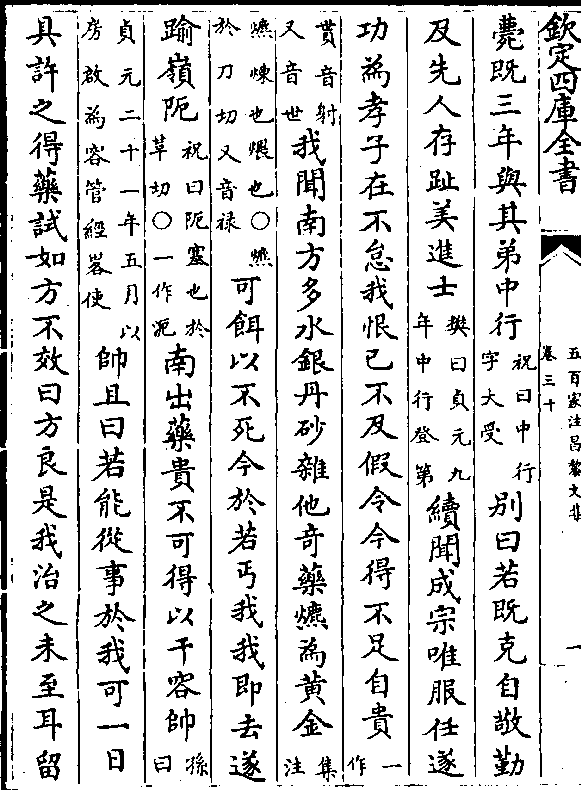 欽定四庫全書
五百家注昌黎文集
卷三十
一
薨既三年與其弟中行祝曰中行字大受別曰若既克自敬勤
及先人存趾美進士樊曰貞元九年中行登第續聞成宗唯服任遂
功為孝子在不怠我恨已不及假令今得不足自貴一作
貰音射又音世我聞南方多水銀丹砂雜他奇藥爊為黃金集注
爊煉也煨也○爊於刀切又音禄可餌以不死今於若丐我我即去遂
踰嶺阨祝曰阨塞也於草切○一作泥南出藥貴不可得以干容帥孫曰
貞元二十一年五月以房啟為容管經畧使帥且曰若能從事於我可一日
具許之得藥試如方不效曰方良是我治之未至耳留